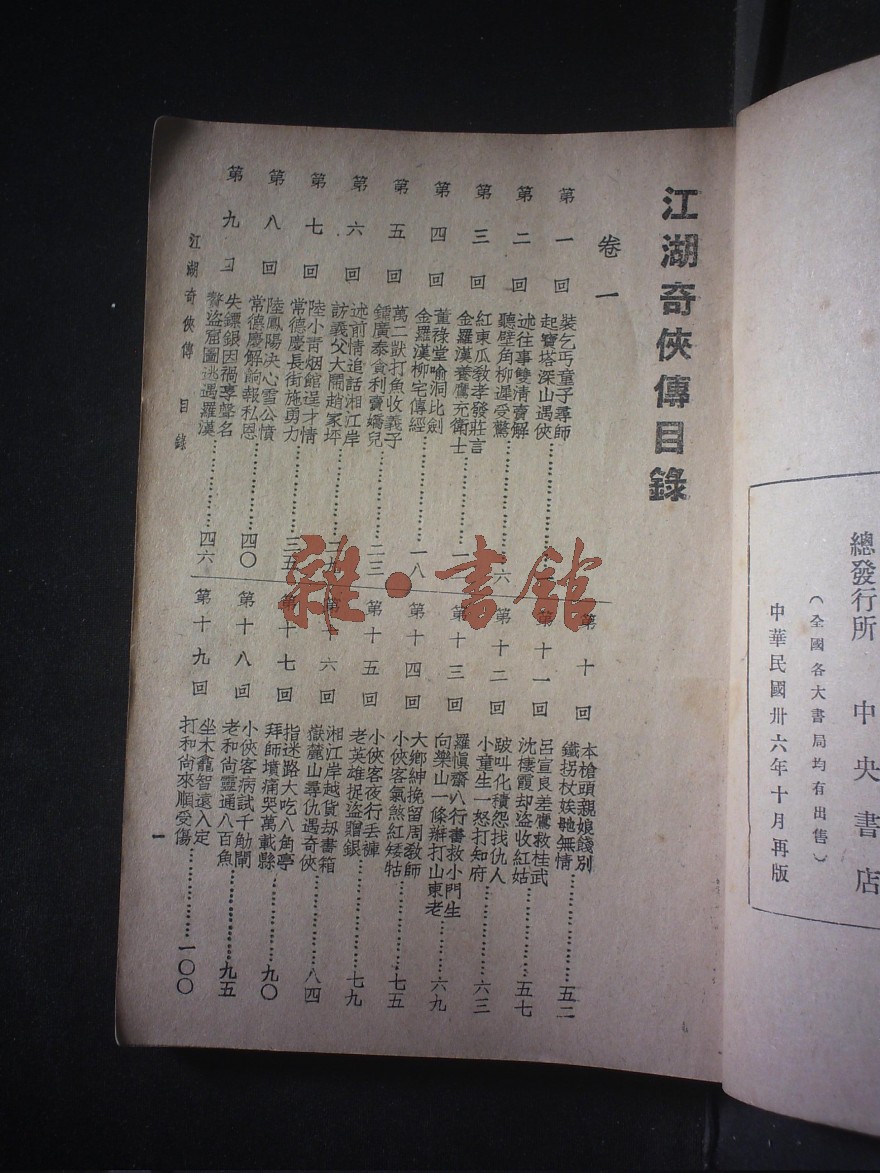 總發行所 中央書店
(全國各大書局均有出售)
中華民國卅六年十月再版
江湖奇俠傳目錄
卷一
第一回 裝乞丐童子尋師
起寶塔深山遇俠
第二回 述往事雙清賣解
聽壁角柳遲受驚 六
第三回 紅東瓜教孝發莊言
金羅漢養鷹充衛士
第四回 董祿堂喻洞比劍
金羅漢柳宅傳經 一八
第五回 萬二獃打魚收義子
鍾廣泰貪利賣嬌兒 二三
第六回 述前情追話湘江岸
訪義父大鬧趙家坪
第七回 陸小青烟館逞才情
常德慶長街施勇力 三五
第八回 陸鳳陽決心雪公憤
常德慶解餉報私恩 四〇
第九回 失鏢銀因禍享聲名
贅盜窟圖逃遇羅漢 四六
第十回 本槍頭親娘餞別
鐵拐杖娭毑無情 五二
第十一回 呂宣良差鷹救桂武
沈棲霞却盜收紅姑 五七
第十二回 跛叫化積怨找仇人
小童生一怒打知府 六三
第十三回 羅慎齋八行書救小門生
向樂山一條辮打山東老 六九
第十四回 大鄉紳挽留周教師
小俠客氣煞紅矮牯 七五
第十五回 小俠客夜行丟褲
老英雄捉盜贈銀 七九
第十六回 湘江岸越貨刼書箱
嶽麓山尋仇遇奇俠 八四
第十七回 指迷路大吃八角亭
拜師墳痛哭萬載縣 九〇
第十八回 小俠客病試千觔閘
老和尚靈通八百魚 九五
第十九回 坐木龕智遠入定
打和尚來順受傷 一〇〇
江湖奇俠傳 目錄
一
雜·書館